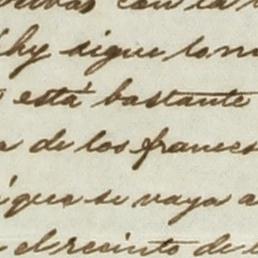 con la
hy sigue lo m
está bastante
a de los frances
que se vaya a
el recinto de l